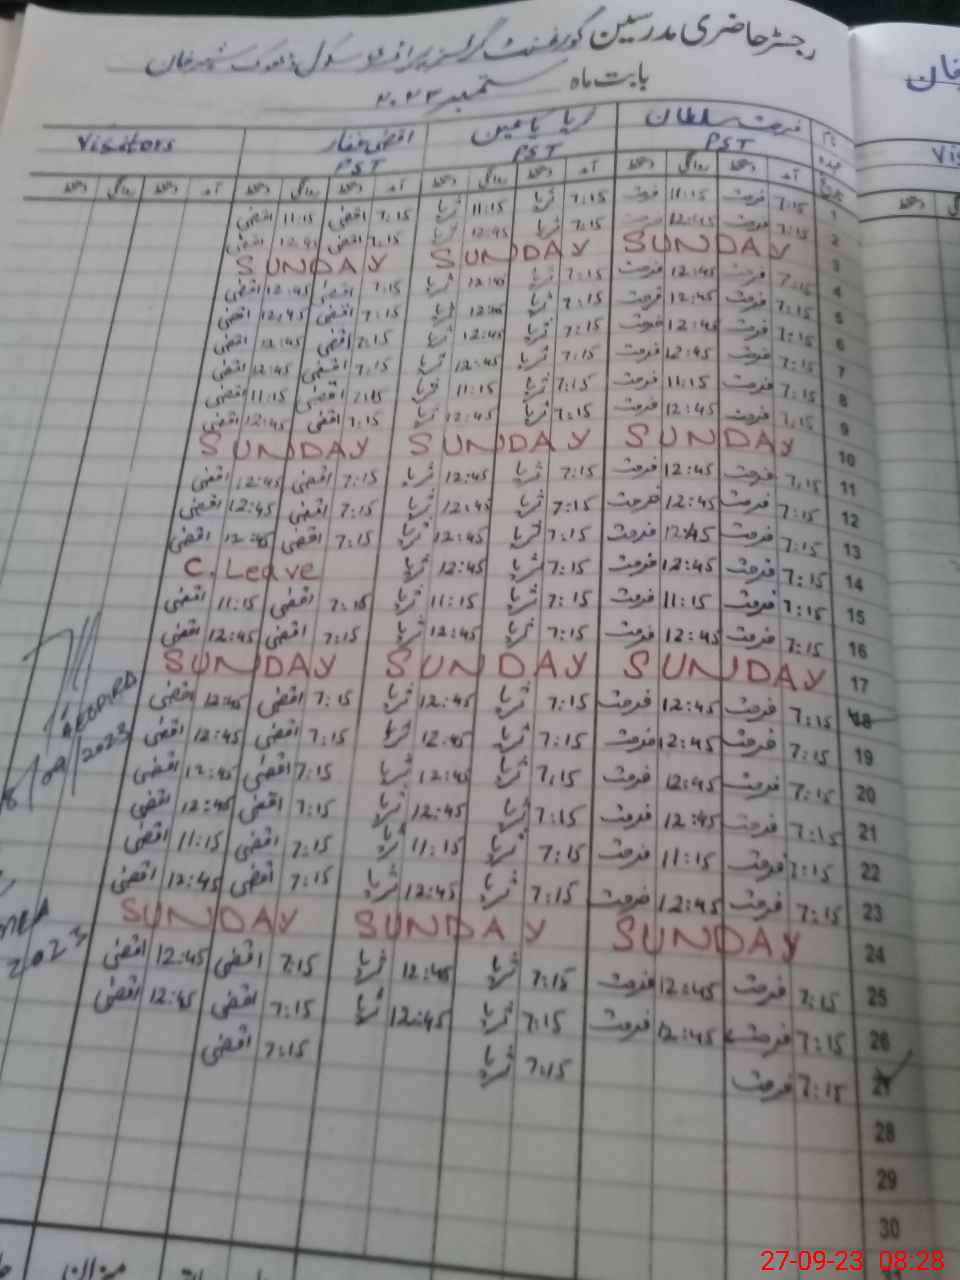 رجسٹر حاضری مدرسین گورنمنٹ گرلز پرائمری سکول ڈھوک شیر خان
بابت ماہ ستمبر ۲۰۲۳
نام فرحت سلطان ثریا یاسمین اقصٰی غفار Visitors
عہدہ PST PST PST
تاریخ آمد دستخط روانگی دستخط آمد دستخط روانگی دستخط آمد دستخط روانگی دستخط آمد دستخط روانگی دستخط
1 7:15 فرحت 11:15 فرحت 7:15 ثریا 11:15 ثریا 7:15 اقصٰی 11:15 اقصٰی
2 7:15 فرحت 12:45 فرحت 7:15 ثریا 12:45 ثریا 7:15 اقصٰی 12:45 اقصٰی
3 SUNDAY SUNDAY SUNDAY
4 7:15 فرحت 12:45 فرحت 7:15 ثریا 12:45 ثریا 7:15 اقصٰی 12:45 اقصٰی
5 7:15 فرحت 12:45 فرحت 7:15 ثریا 12:45 ثریا 7:15 اقصٰی 12:45 اقصٰی
6 7:15 فرحت 12:45 فرحت 7:15 ثریا 12:45 ثریا 7:15 اقصٰی 12:45 اقصٰی
7 7:15 فرحت 12:45 فرحت 7:15 ثریا 12:45 ثریا 7:15 اقصٰی 12:45 اقصٰی
8 7:15 فرحت 11:15 فرحت 7:15 ثریا 11:15 ثریا 7:15 اقصٰی 11:15 اقصٰی
9 7:15 فرحت 12:45 فرحت 7:15 ثریا 12:45 ثریا 7:15 اقصٰی 12:45 اقصٰی
10 SUNDAY SUNDAY SUNDAY
11 7:15 فرحت 12:45 فرحت 7:15 ثریا 12:45 ثریا 7:15 اقصٰی 12:45 اقصٰی
12 7:15 فرحت 12:45 فرحت 7:15 ثریا 12:45 ثریا 7:15 اقصٰی 12:45 اقصٰی
13 7:15 فرحت 12:45 فرحت 7:15 ثریا 12:45 ثریا 7:15 اقصٰی 12:45 اقصٰی
14 7:15 فرحت 12:45 فرحت 7:15 ثریا 12:45 ثریا C. Leave
15 7:15 فرحت 11:15 فرحت 7:15 ثریا 11:15 ثریا 7:15 اقصٰی 11:15 اقصٰی
16 7:15 فرحت 12:45 فرحت 7:15 ثریا 12:45 ثریا 7:15 اقصٰی 12:45 اقصٰی
17 SUNDAY SUNDAY SUNDAY
18 7:15 فرحت 12:45 فرحت 7:15 ثریا 12:45 ثریا 7:15 اقصٰی 12:45 اقصٰی
19 7:15 فرحت 12:45 فرحت 7:15 ثریا 12:45 ثریا 7:15 اقصٰی 12:45 اقصٰی
20 7:15 فرحت 12:45 فرحت 7:15 ثریا 12:45 ثریا 7:15 اقصٰی 12:45 اقصٰی
21 7:15 فرحت 12:45 فرحت 7:15 ثریا 12:45 ثریا 7:15 اقصٰی 12:45 اقصٰی
22 7:15 فرحت 11:15 فرحت 7:15 ثریا 11:15 ثریا 7:15 اقصٰی 11:15 اقصٰی
23 7:15 فرحت 12:45 فرحت 7:15 ثریا 12:45 ثریا 7:15 اقصٰی 12:45 اقصٰی
24 SUNDAY SUNDAY SUNDAY
25 7:15 فرحت 12:45 فرحت 7:15 ثریا 12:45 ثریا 7:15 اقصٰی 12:45 اقصٰی
26 7:15 فرحت 12:45 فرحت 7:15 ثریا 12:45 ثریا 7:15 اقصٰی 12:45 اقصٰی
27 7:15 فرحت 7:15 ثریا 7:15 اقصٰی
28
29
30
/2023
2023
میزان
خان
27-09-23 08:28